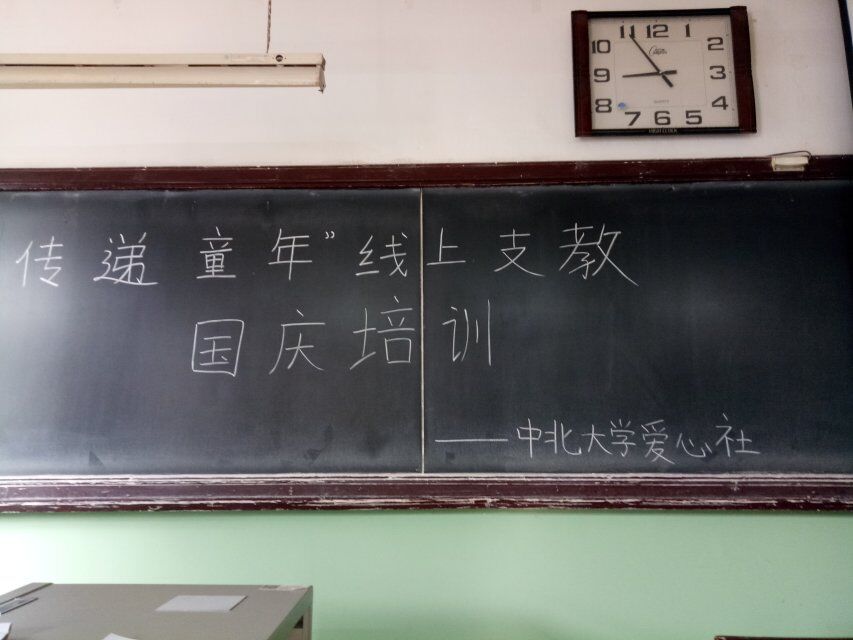 11 12 1
10 2
9 3
8 4
7 6 5
QUARTZ
传递童年”线上支教
国庆培训
——中北大学爱心社